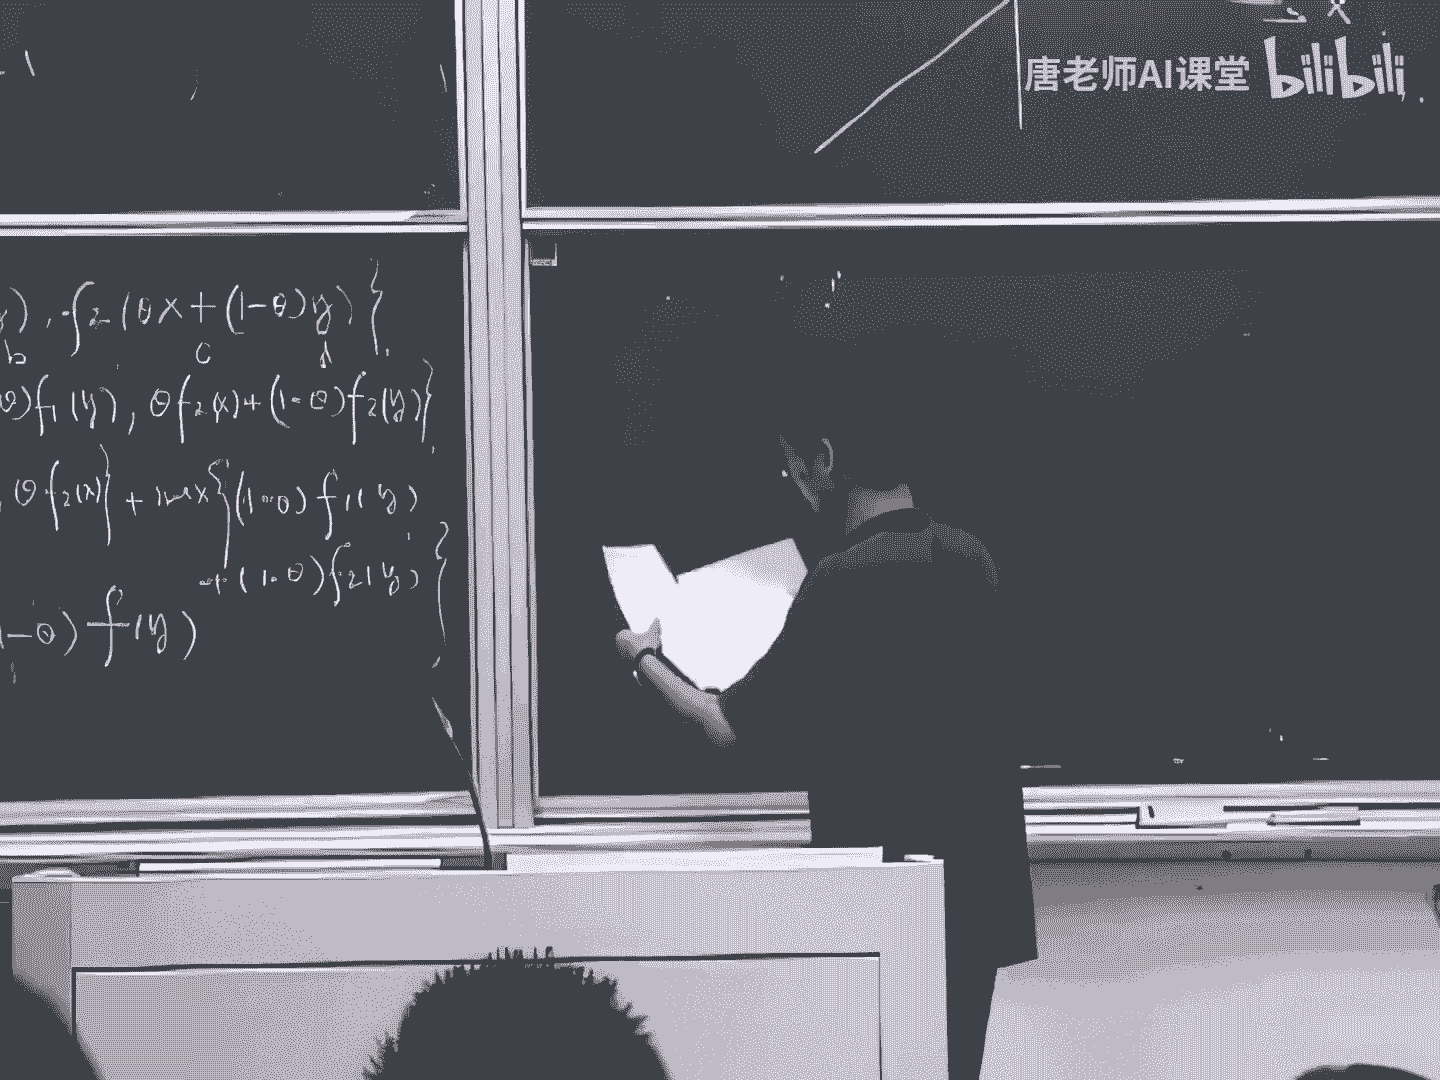 唐老师AI课堂 bilibili
), f2(θx+(1-θ)y)}
b c d
θ)f1(y), θf2(x)+(1-θ)f2(y)}
, θf2(x)} + max{(1-θ)f1(y)
(1-θ)f2(y)}
1-θ)f(y)